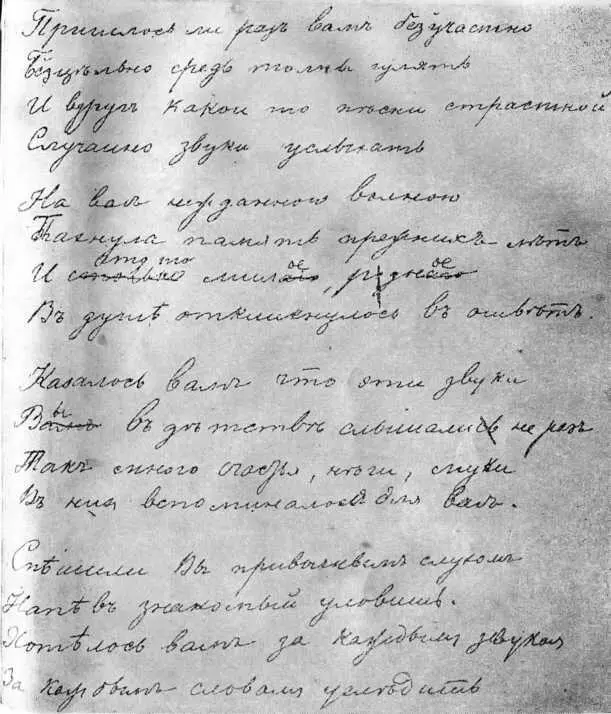 Пришлось ли разъ вамъ безучастно
Безцѣльно средь толпы гулять
И вдругъ какой то пѣсни страстной
Случайно звуки услыхать
На васъ нежданною волною
Пахнула память прежнихъ лѣтъ
И что то милое, родное
Въ душѣ откликнулось въ отвѣтъ.
Казалось вамъ что эти звуки
Вы въ дѣтствѣ слышали не разъ
Такъ много счастья, нѣги, муки
Въ них вспоминалось для васъ.
Спѣшили Вы привычнымъ слухомъ
Напѣвъ знакомый уловить.
Хотѣлось вамъ за каждым звуком
За каждымъ словомъ услѣдить